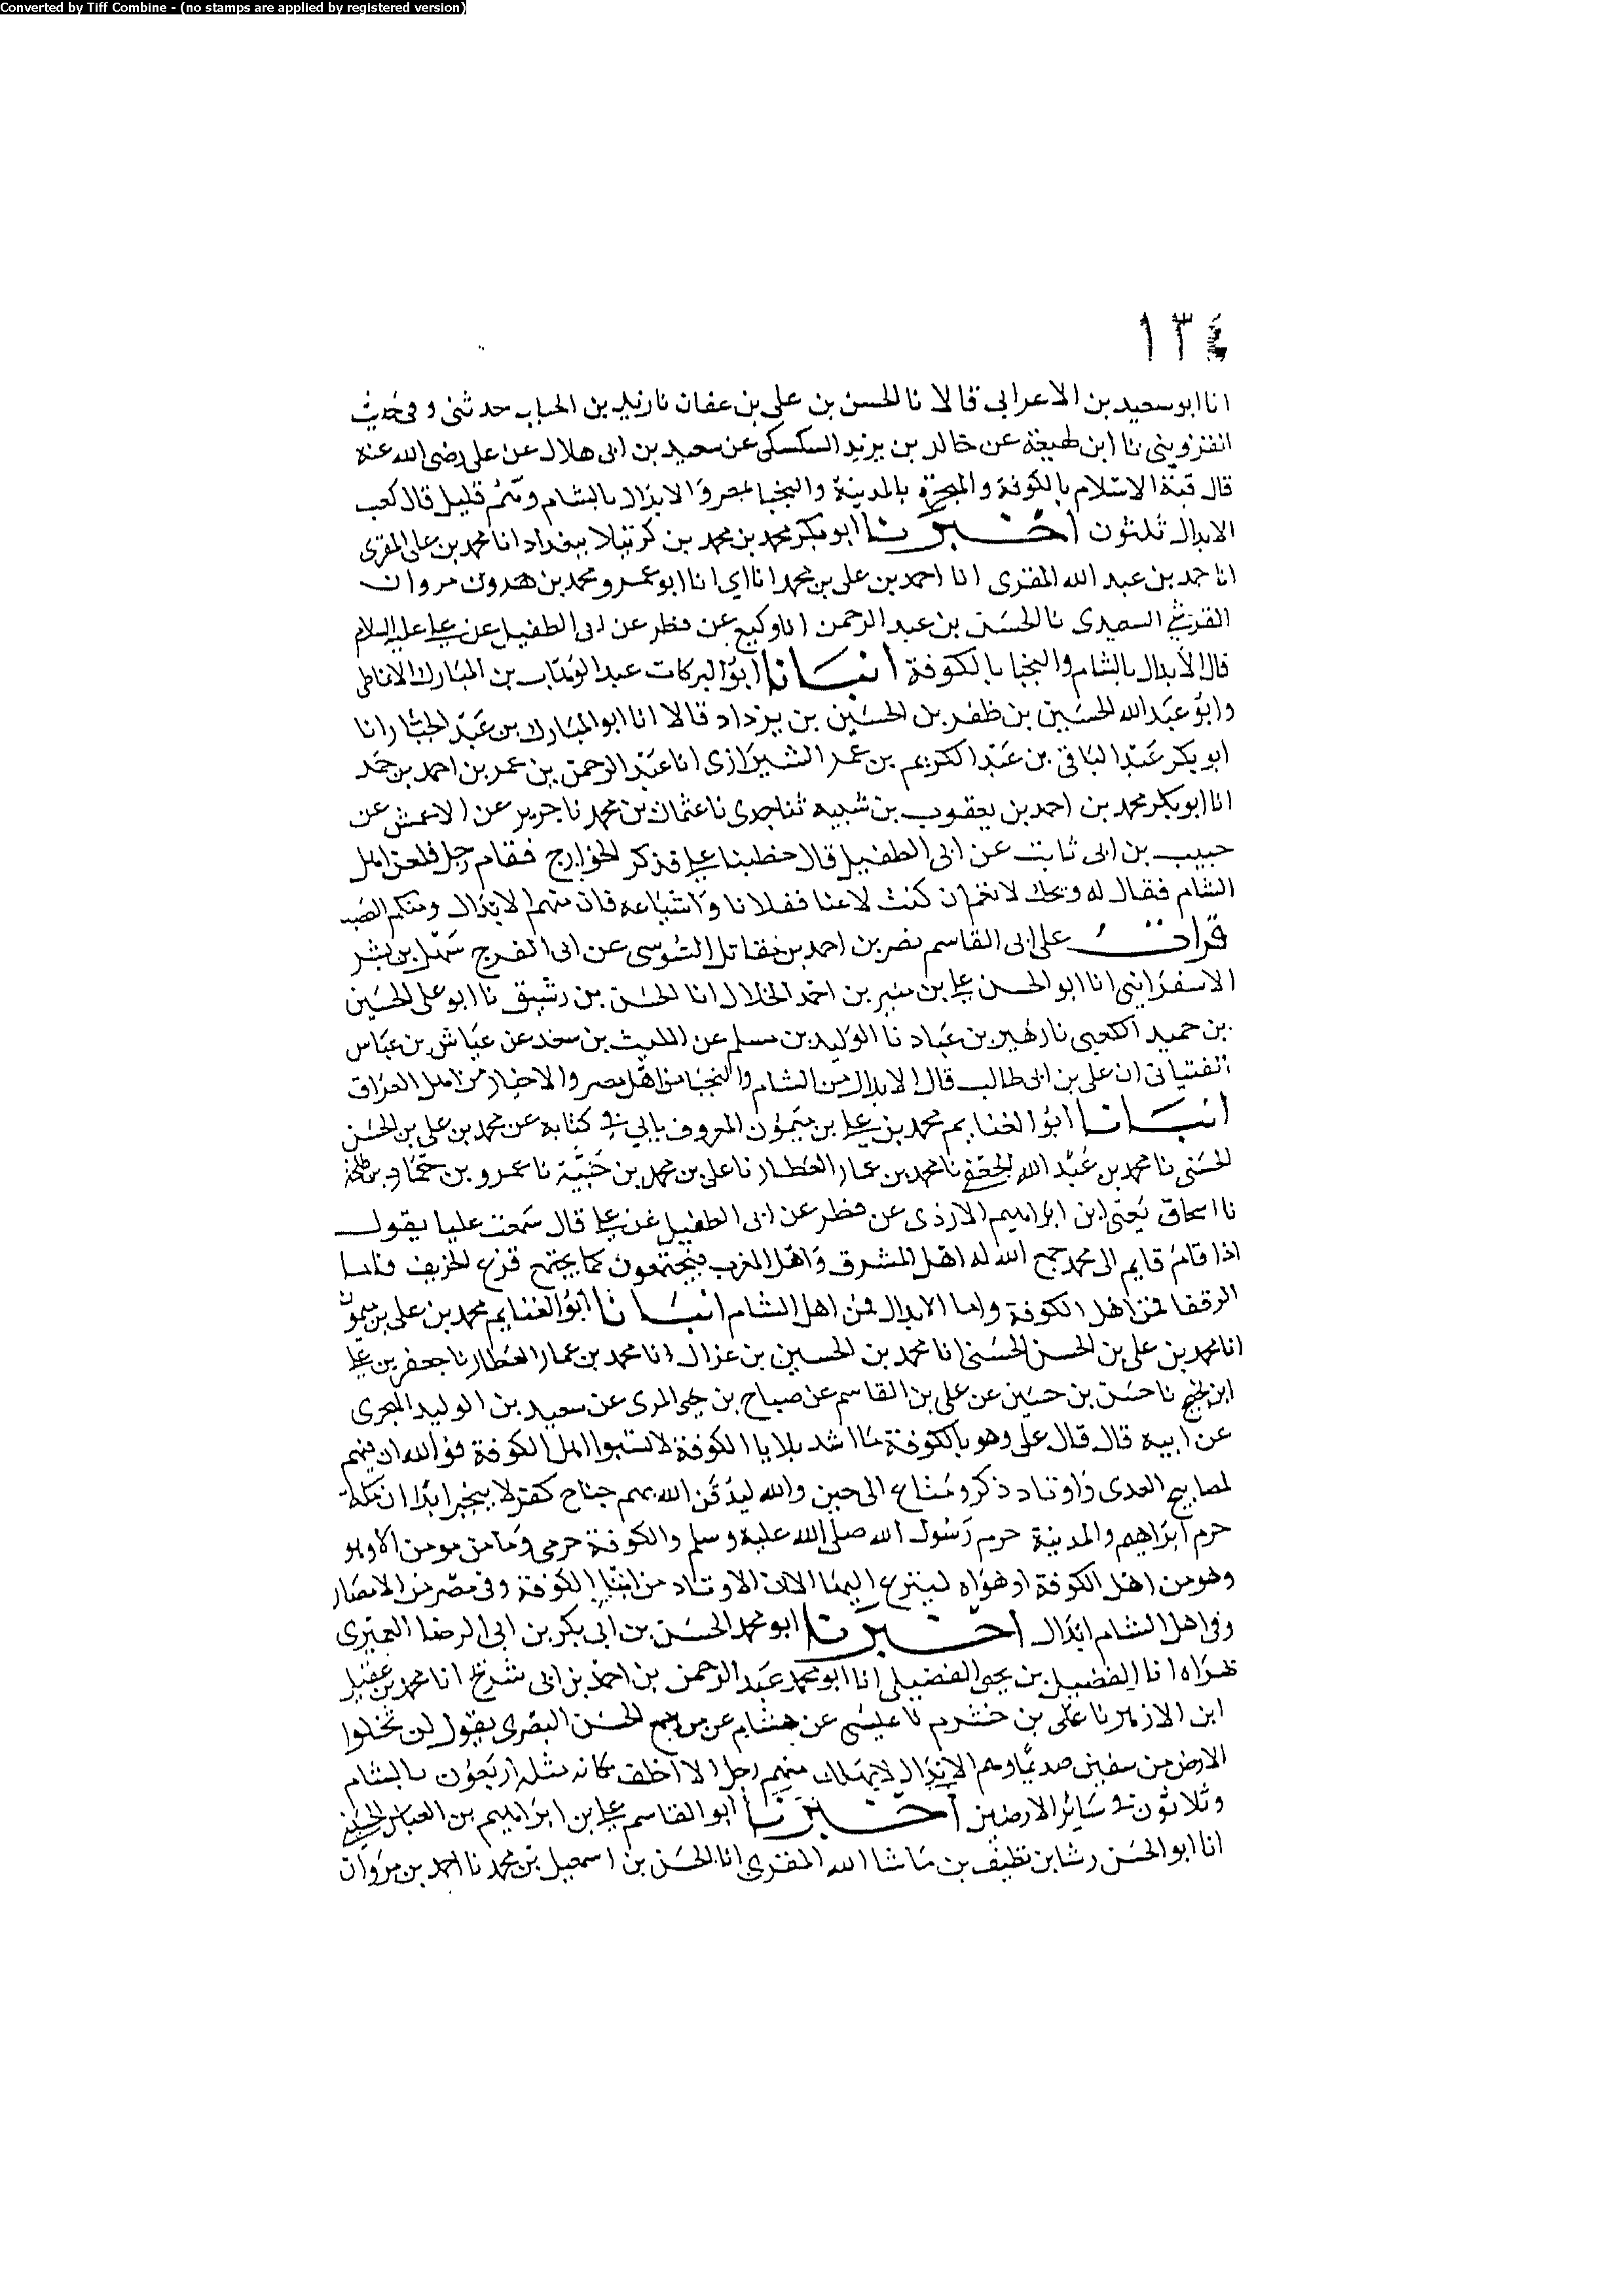 Converted by Tiff Combine - (no stamps are applied by registered version)
١٣٤
انا ابو سعيد بن الاعرابى قالا نا الحسن بن على بن عفان نا زيد بن الحباب حدثنى وفى حديث
القزوينى نا ابن لهيعة عن خالد بن يزيد السكسكى عن سعيد بن ابى هلال عن على رضى الله عنه
قال قبة الاسلام بالكوفة والهجرة بالمدينة والنجبا بمصر والابدال بالشام وهم قليل قال كعب
الابدال ثلثون اخبرنا ابو بكر محمد بن محمد بن كرتيلا ببغداد انا محمد بن على المقرى
انا احمد بن عبد الله المقرى انا احمد بن على بن محمد انا ابى انا ابو عمرو محمد بن مروان
القرشى السعيدى نا الحسين بن عبد الرحمن انا وكيع عن فطر عن ابى الطفيل عن على عليه السلام
قال الأبدال بالشام والنجبا بالكوفة انبانا ابو البركات عبد الوهاب بن المبارك الانماطى
وابو عبد الله الحسين بن ظفر بن الحسين بن يزداد قالا انا ابو المبارك بن عبد الجبار انا
ابو بكر عبد الباقى بن عبد الكريم بن عمر الشيرازى انا عبد الرحمن بن عمر بن احمد بن حمد
انا ابو بكر محمد بن احمد بن يعقوب بن شيبه ثنا جدى نا عثمان بن محمد نا جرير عن الاعمش عن
حبيب بن ابى ثابت عن ابى الطفيل قال خطبنا على فذكر الخوارج فقام رجل فلعن اهل
الشام فقال له ويحك لا تعم ان كنت لاعنا ففلانا واشياعه فان منهم الابدال ومنكم العصب
قرات على ابى القاسم نصر بن احمد بن مقاتل السوسى عن ابى الفرج سهل بن بشر
الاسفراينى انا ابو الحسن على بن منير بن احمد الخلال انا الحسن بن رشيق نا ابو على الحسين
بن حميد الكعبى نا زهير بن عباد نا الوليد بن مسلم عن الليث بن سعد عن عياش بن عباس
القتبانى ان على بن ابى طالب قال الابدال من الشام والنجبا من اهل مصر والاخيار من اهل العراق
انبانا ابو الغنايم محمد بن على بن ميمون المعروف بابى فى كتابه عن محمد بن على بن الحسن
الحسنى نا محمد بن عبد الله الجعفى نا محمد بن عمار العطار نا على بن محمد بن خبية نا عمرو بن حماد بن طلحة
نا اسحاق يعنى ابن ابراهيم الازدى عن فطر عن ابى الطفيل عن على قال سمعت عليا يقول
اذا قام قايم ال محمد جمع الله له اهل المشرق واهل المغرب فيجتمعون كما يجتمع قزع الخريف فاما
الرفقا فمن اهل الكوفة واما الابدال فمن اهل الشام انبانا ابو الغنايم محمد بن على بن ميمون
انا محمد بن على بن الحسن الحسنى انا محمد بن الحسين بن غزال انا محمد بن عمار العطار نا جعفر بن على
ابن نجيح نا حسن بن حسين عن على بن القاسم عن صباح بن يحيى المرى عن سعيد بن الوليد الهجرى
عن ابيه قال قال على وهو بالكوفة ما اشد بلايا الكوفة لا تسبوا اهل الكوفة فوالله ان فيهم
لمصابيح الهدى واوتاد ذكر ومتاع الى حين والله ليدقن الله بهم جناح كفر لا ينجبر ابدا ان مكة
حرم ابراهيم والمدينة حرم رسول الله صلى الله عليه وسلم والكوفة حرمى وما من مومن الا وهو
وهو من اهل الكوفة او هواه لينزع اليها الا ان الاوتاد من ابنا الكوفة وفى مصر من الامصار
وفى اهل الشام ابدال اخبرنا ابو محمد الحسن بن ابى بكر بن ابى الرضا
بهراه انا الفضيل بن يحيى الفضيلى انا ابو محمد عبد الرحمن بن احمد بن ابى شريح انا محمد بن عقيل
ابن الازهر نا على بن خشرم نا عيسى عن هشام عن من سمع الحسن البصرى يقول لن تخلوا
الارض من سبعين صديقا وهم الابدال لا يهلك منهم رجل الا اخلف مكانه مثله اربعون بالشام
وثلاثون فى ساير الارضين اخبرنا ابو القاسم على بن ابراهيم بن العباس الحسينى
انا ابو الحسن رشا بن نظيف بن ماشا الله المقرى انا الحسن بن اسمعيل بن محمد نا احمد بن مروان